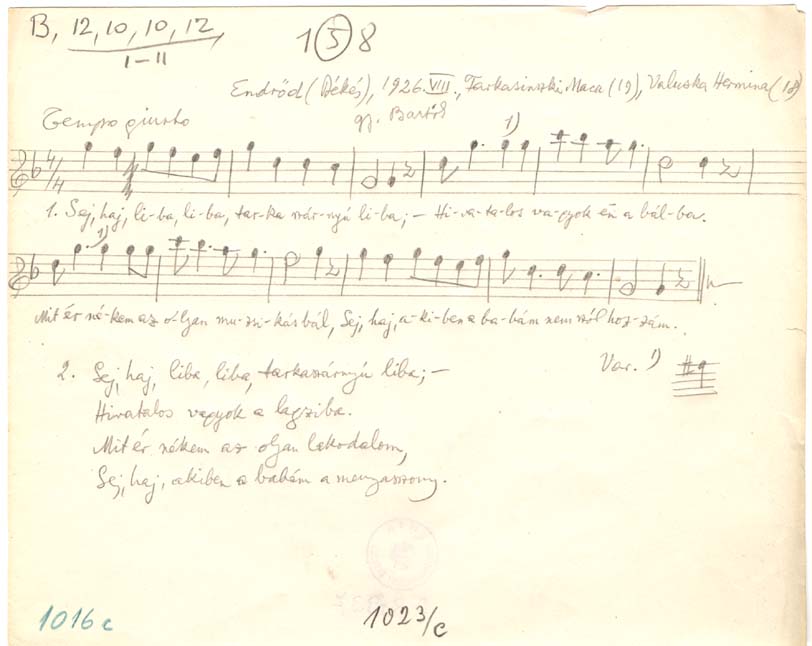 B, 12, 10, 10, 12,
I-II
1 5 8
Endrőd (Békés), 1926. VIII., Farkasinszki Maca (19), Valuska Hermina (18)
Tempo giusto
gy. Bartók
1)
4/4
1. Sej, haj, li-ba, li-ba, tar-ka szár-nyú li-ba; – Hi-va-ta-los va-gyok én a bál-ba.
1)
Mit ér né-kem az o-lyan mu-zsi-kás bál, Sej, haj, a-ki-ben a ba-bám nem szól hoz-zám.
Var. 1)
2. Sej, haj, liba, liba, tarkaszárnyú liba; –
Hivatalos vagyok a lagziba.
Mit ér nékem az olyan lakodalom,
Sej, haj, akiben a babám a menyasszony.
1016 c
1023/c